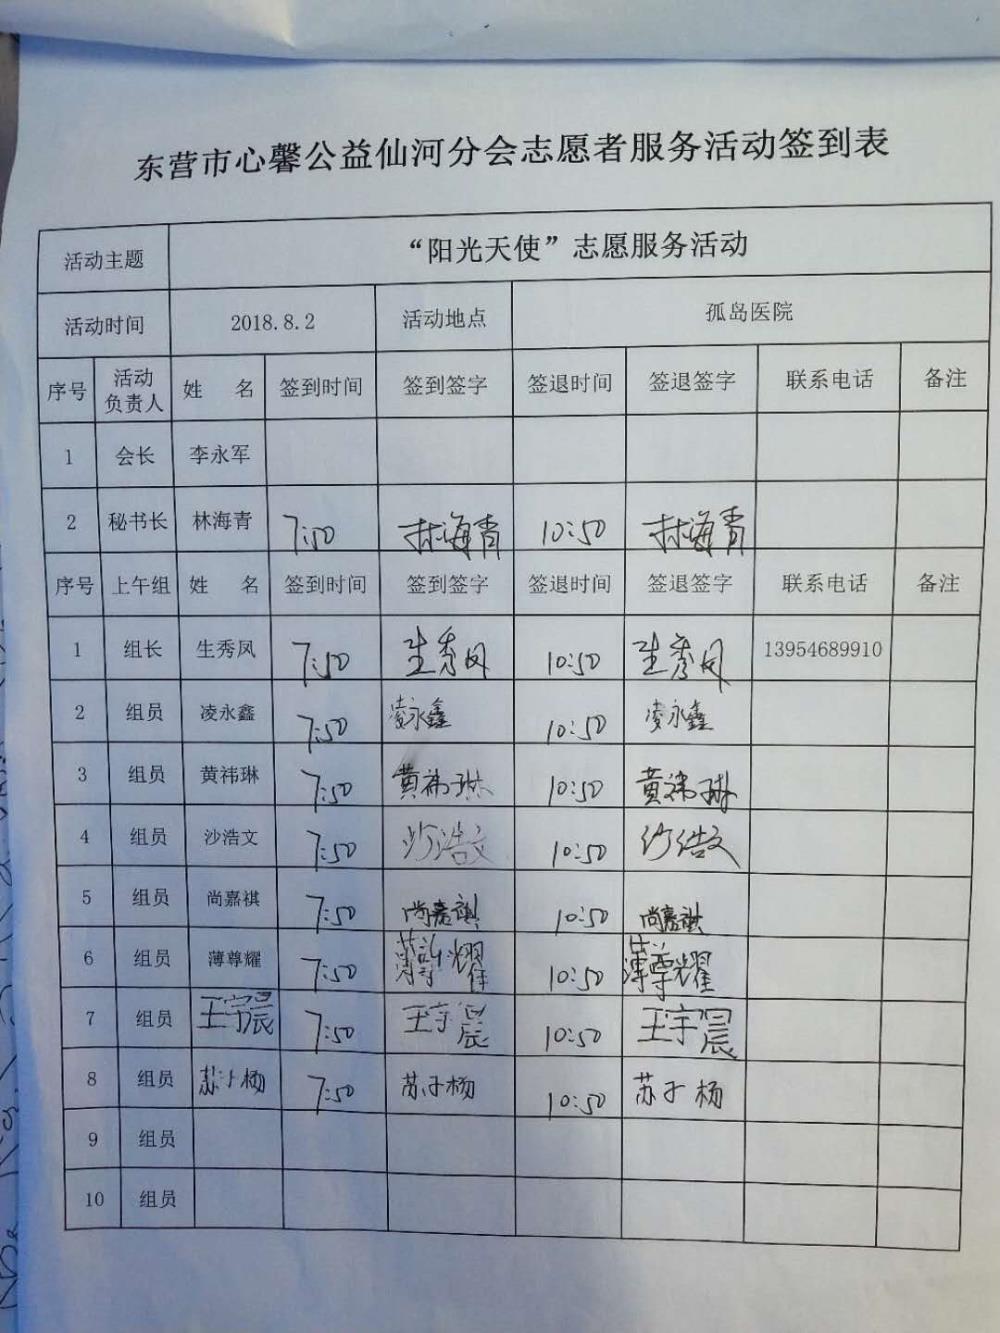 东营市心馨公益仙河分会志愿者服务活动签到表
活动主题 “阳光天使”志愿服务活动
活动时间 2018.8.2 活动地点 孤岛医院
序号 活动负责人 姓 名 签到时间 签到签字 签退时间 签退签字 联系电话 备注
1 会长 李永军
2 秘书长 林海青 7:50 林海青 10:50 林海青
序号 上午组 姓 名 签到时间 签到签字 签退时间 签退签字 联系电话 备注
1 组长 生秀凤 7:50 生秀凤 10:50 生秀凤 13954689910
2 组员 凌永鑫 7:50 凌永鑫 10:50 凌永鑫
3 组员 黄祎琳 7:50 黄祎琳 10:50 黄祎琳
4 组员 沙浩文 7:50 沙浩文 10:50 沙浩文
5 组员 尚嘉祺 7:50 尚嘉祺 10:50 尚嘉祺
6 组员 薄尊耀 7:50 薄尊耀 10:50 薄尊耀
7 组员 王宇晨 7:50 王宇晨 10:50 王宇晨
8 组员 苏子杨 7:50 苏子杨 10:50 苏子杨
9 组员
10 组员